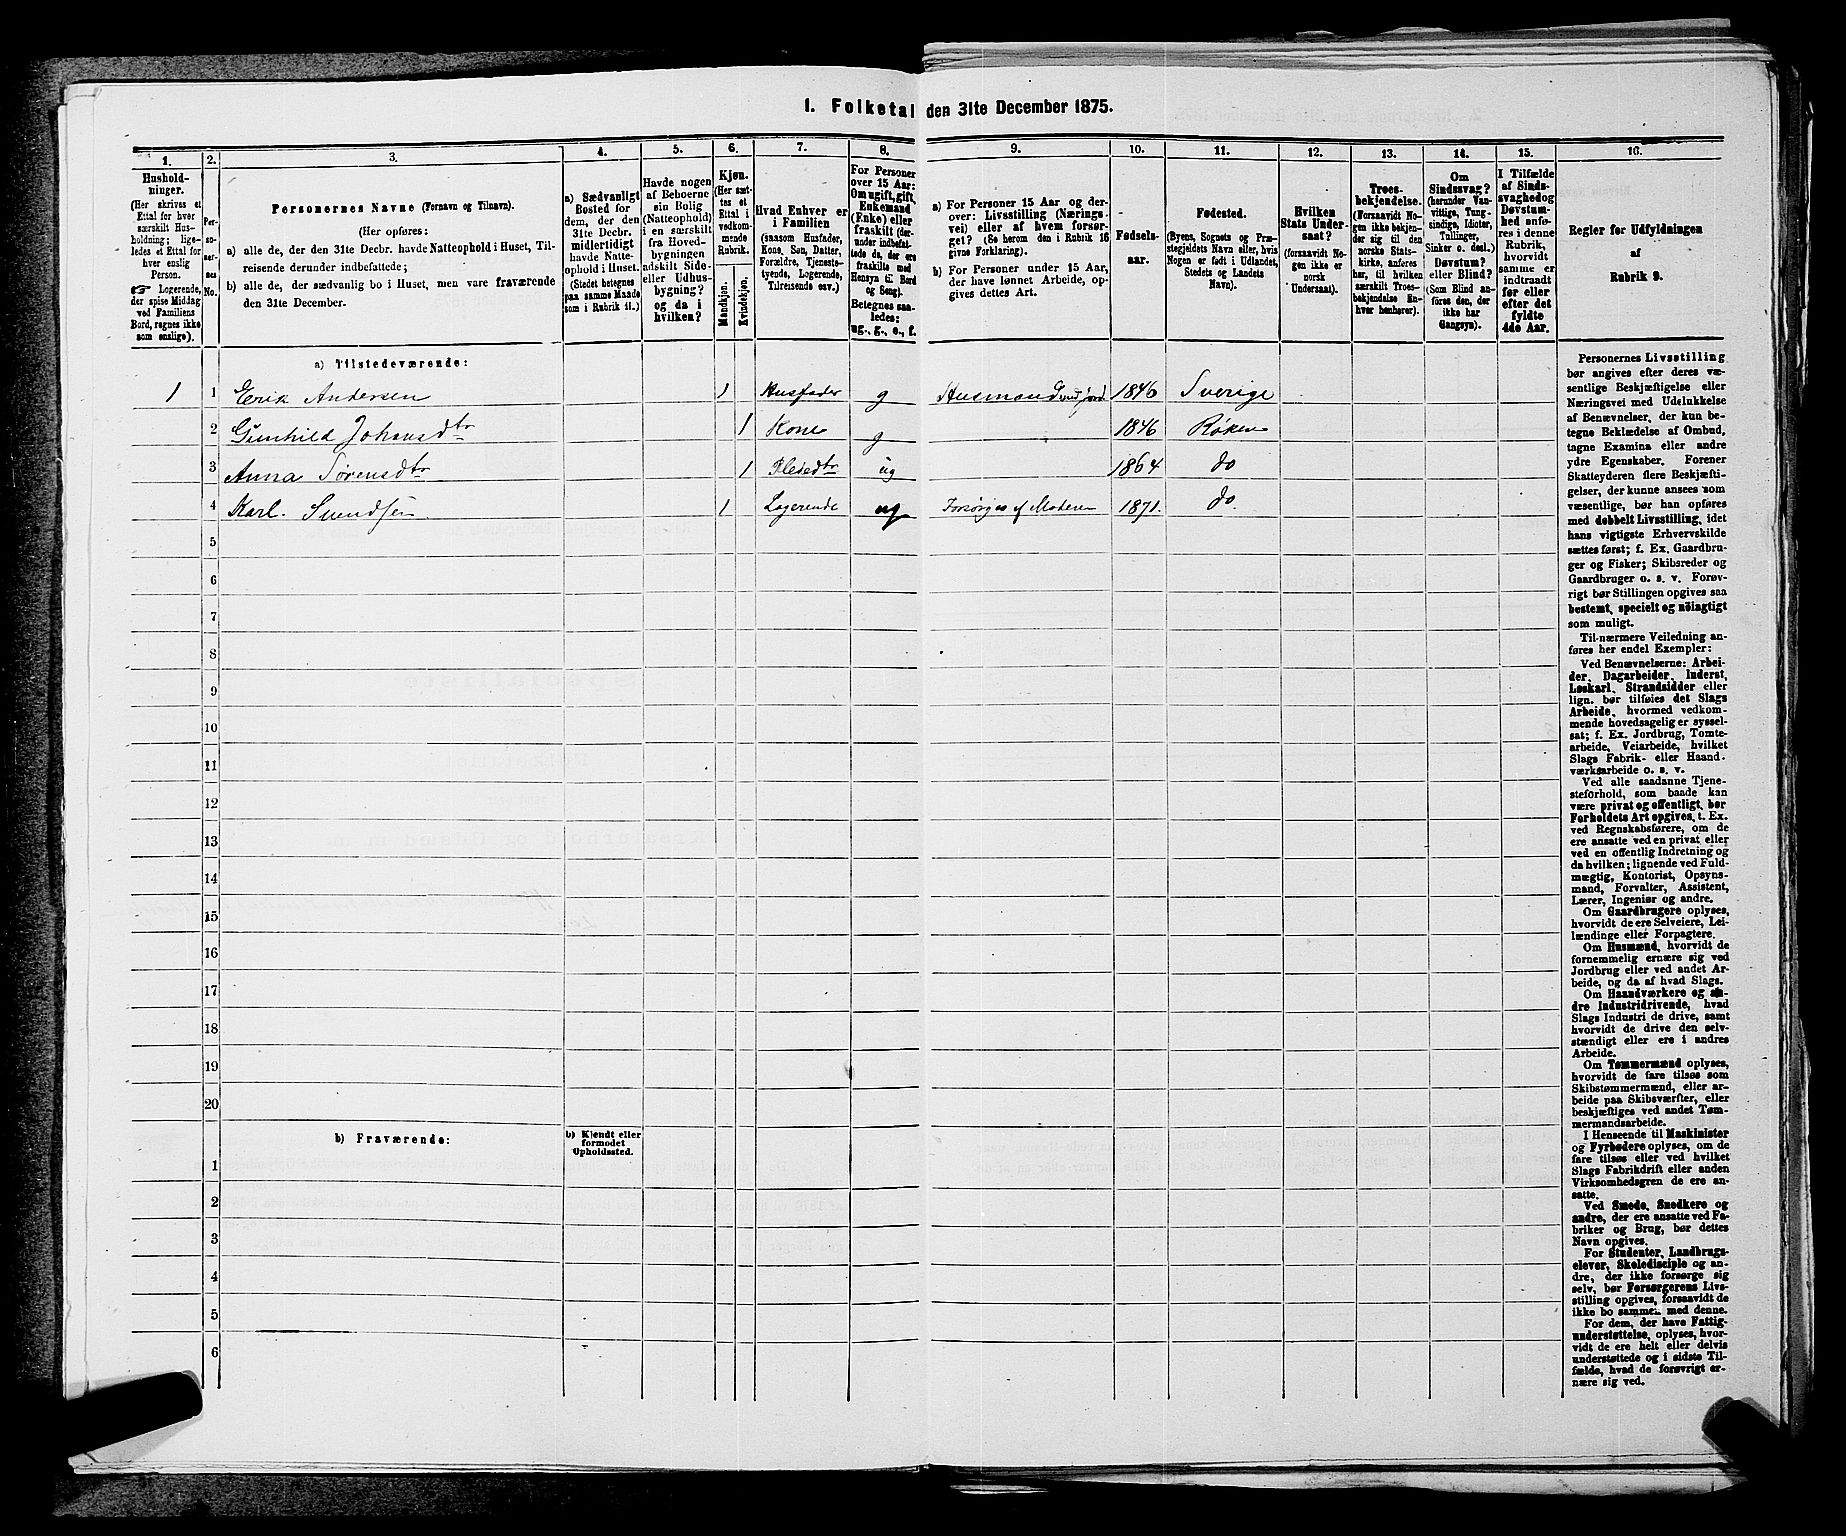 I. Folketal den 31te December 1875.
1. 2. 3. 4. 5. 6. 7. 8. 9. 10. 11. 12. 13. 14. 15. 16.
Hushold-
ninger.
(Her skrives et
Ettal for hver
særskilt Hus-
holdning; lige-
ledes et Ettal for
hver enslig
Person.
☞ Logerende,
der spise Middag
ved Familiens
Bord, regnes ikke
som enslige).
Per-
so-
ner-
nes
No.
Personernes Navne (Fornavn og Tilnavn).
(Her opføres:
a) alle de, der den 31te Decbr. havde Natteophold i Huset, Til-
reisende derunder indbefattede;
b) alle de, der sædvanlig bo i Huset, men vare fraværende
den 31te December.
a) Sædvanligt
Bosted for
dem, der den
31te Decbr.
midlertidigt
havde Natte-
ophold i Huset.
(Stedet betegnes
paa samme Maade
som i Rubrik 11.)
Havde nogen
af Beboerne
sin Bolig
(Natteophold)
i en særskilt
fra Hoved-
bygningen
adskilt Side-
eller Udhus-
bygning?
og da i
hvilken?
Kjøn.
(Her sæt-
tes et
Ettal i
vedkom-
mende
Rubrik.
Mandkjøn.
Kvindekjøn.
Hvad Enhver er
i Familien
(saasom Husfader,
Kone, Søn, Datter,
Forældre, Tjeneste-
tyende, Logerende,
Tilreisende osv.)
For Personer
over 15 Aar:
Om ugift, gift,
Enkemand
(Enke) eller
fraskilt (der-
under indbefat-
tede de, der ere
fraskilte med
Hensyn til Bord
og Seng).
Betegnes saa-
ledes:
ug., g., e., f.
a) For Personer 15 Aar og der-
over: Livsstilling (Nærings-
vei) eller af hvem forsør-
get? (Se herom den i Rubrik 16
givne Forklaring).
b) For Personer under 15 Aar,
der have lønnet Arbeide, op-
gives dettes Art.
Fødsels-
aar.
Fødested.
(Byens, Sognets og Præ-
stegjeldets Navn eller, hvis
Nogen er født i Udlandet,
Stedets og Landets
Navn).
Hvilken
Stats Under-
saat?
(forsaavidt No-
gen ikke er
norsk
Undersaat).
Troes-
bekjendelse.
(Forsaavidt No-
gen ikke bekjen-
der sig til den
norske Stats-
kirke, anføres
her, til hvilken
særskilt Troes-
bekjendelse En-
hver henhører).
Om
Sindssvag?
(herunder Van-
vittige, Tung-
sindige, Idioter,
Tullinger,
Sinker o. desl.)
Døvstum?
eller Blind?
(Som Blind an-
føres den, der
ikke har
Gangsyn).
I Tilfælde
af Sinds-
svaghed og
Døvstum-
hed anfø-
res i denne
Rubrik,
hvorvidt
samme er
indtraadt
før eller
efter det
fyldte
4de Aar.
Regler for Udfyldningen
af
Rubrik 9.
a) Tilstedeværende:
1 1 Erik Andersen 1 Husfader g Husmand med jord 1846 Sverige
2 Gunhild Johansdtr 1 Kone g 1846 Røken
3 Anna Sørensdtr 1 Pleiedtr ug 1864 do
4 Karl Svendsen 1 Logerende ug Forsørges af Moderen 1871. do.
5
6
7
8
9
10
11
12
13
14
15
16
17
18
19
20
b) Fraværende:
b) Kjendt eller
formodet
Opholdssted.
1
2
3
4
5
6
Personernes Livsstilling
bør angives efter deres væ-
sentlige Beskjæftigelse eller
Næringsvei med Udelukkelse
af Benævnelser, der kun be-
tegne Beklædelse af Ombud,
tagne Examina eller andre
ydre Egenskaber. Forener
Skatteyderen flere Beskjæfti-
gelser, der kunne ansees som
væsentlige, bør han opføres
med dobbelt Livsstilling, idet
hans vigtigste Erhvervskilde
sættes først; f. Ex. Gaardbru-
ger og Fisker; Skibsreder og
Gaardbruger o. s. v. Forøv-
rigt bør Stillingen opgives saa
bestemt, specielt og nöiagtigt
som muligt.
Til nærmere Veiledning an-
føres her endel Exempler:
Ved Benævnelserne: Arbei-
der, Dagarbeider, Inderst,
Løskarl, Strandsidder eller
lign. bør tilføies det Slags
Arbeide, hvormed vedkom-
mende hovedsagelig er syssel-
sat; f. Ex. Jordbrug, Tomte-
arbeide, Veiarbeide, hvilket
Slags Fabrik- eller Haand-
værksarbeide o. s. v.
Ved alle saadanne Tjene-
steforhold, som baade kan
være privat og offentligt, bør
Forholdets Art opgives, t. Ex.
ved Regnskabsførere, om de
ere ansatte ved en privat eller
ved en offentlig Indretning og
da hvilken; lignende ved Fuld-
mægtig, Kontorist, Opsyns-
mand, Forvalter, Assistent,
Lærer, Ingeniør og andre.
Om Gaardbrugere oplyses,
hvorvidt de ere Selveiere, Lei-
lændinge eller Forpagtere.
Om Husmænd, hvorvidt de
fornemmelig ernære sig ved
Jordbrug eller ved andet Ar-
beide, og da af hvad Slags.
Om Haandværkere og an-
dre Industridrivende, hvad
Slags Industri de drive, samt
hvorvidt de drive den selv-
stændigt eller ere i andres
Arbeide.
Om Tømmermænd oplyses,
hvorvidt de fare tilsøs som
Skibstømmermænd, eller ar-
beide paa Skibsværfter, eller
beskjæftiges ved andet Tøm-
mermandsarbeide.
I Henseende til Maskinister
og Fyrbødere oplyses, om de
fare tilsøs eller ved hvilket
Slags Fabrikdrift eller anden
Virksomhedsgren de ere an-
satte.
Ved Smede, Snedkere og
andre, der ere ansatte ved Fa-
briker og Brug, bør dettes
Navn opgives.
For Studenter, Landbrugs-
elever, Skoledisciple og an-
dre, der ikke forsørge sig
selv, bør Forsørgerens Livs-
stilling opgives, forsaavidt de
ikke bo sammen med denne.
For dem, der have Fattig-
understøttelse, oplyses, hvor-
vidt de ere helt eller delvis
understøttede og i sidste Til-
fælde, hvad de forøvrigt er-
nære sig ved.